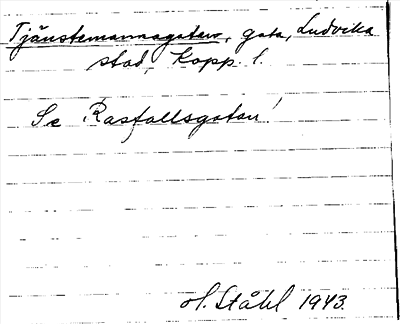 Tjänstemannagatan, gata, Ludvika
stad, Kopp. l.
Se Rasfallsgatan!
H. Ståhl 1943.